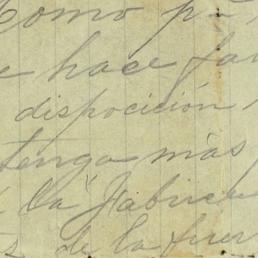 Como p
hace fa
disposición
tenga mas
la Fabrica
de la fuer